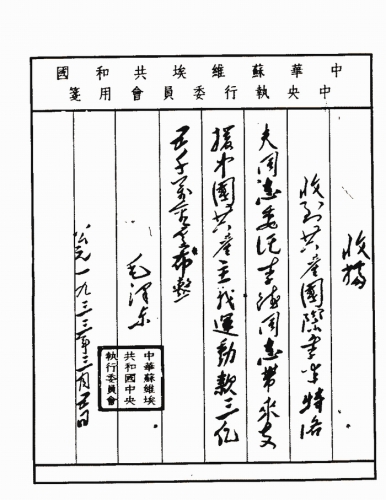 中華蘇維埃共和國
中央執行委員會用箋
收據
收到共產國際季米特洛
夫同志委託李德同志帶來支
援中國共產主義運動款三億
五千萬盧布整
毛澤东
公元一九三三年三月五日
中華蘇維埃
共和國中央
執行委員會